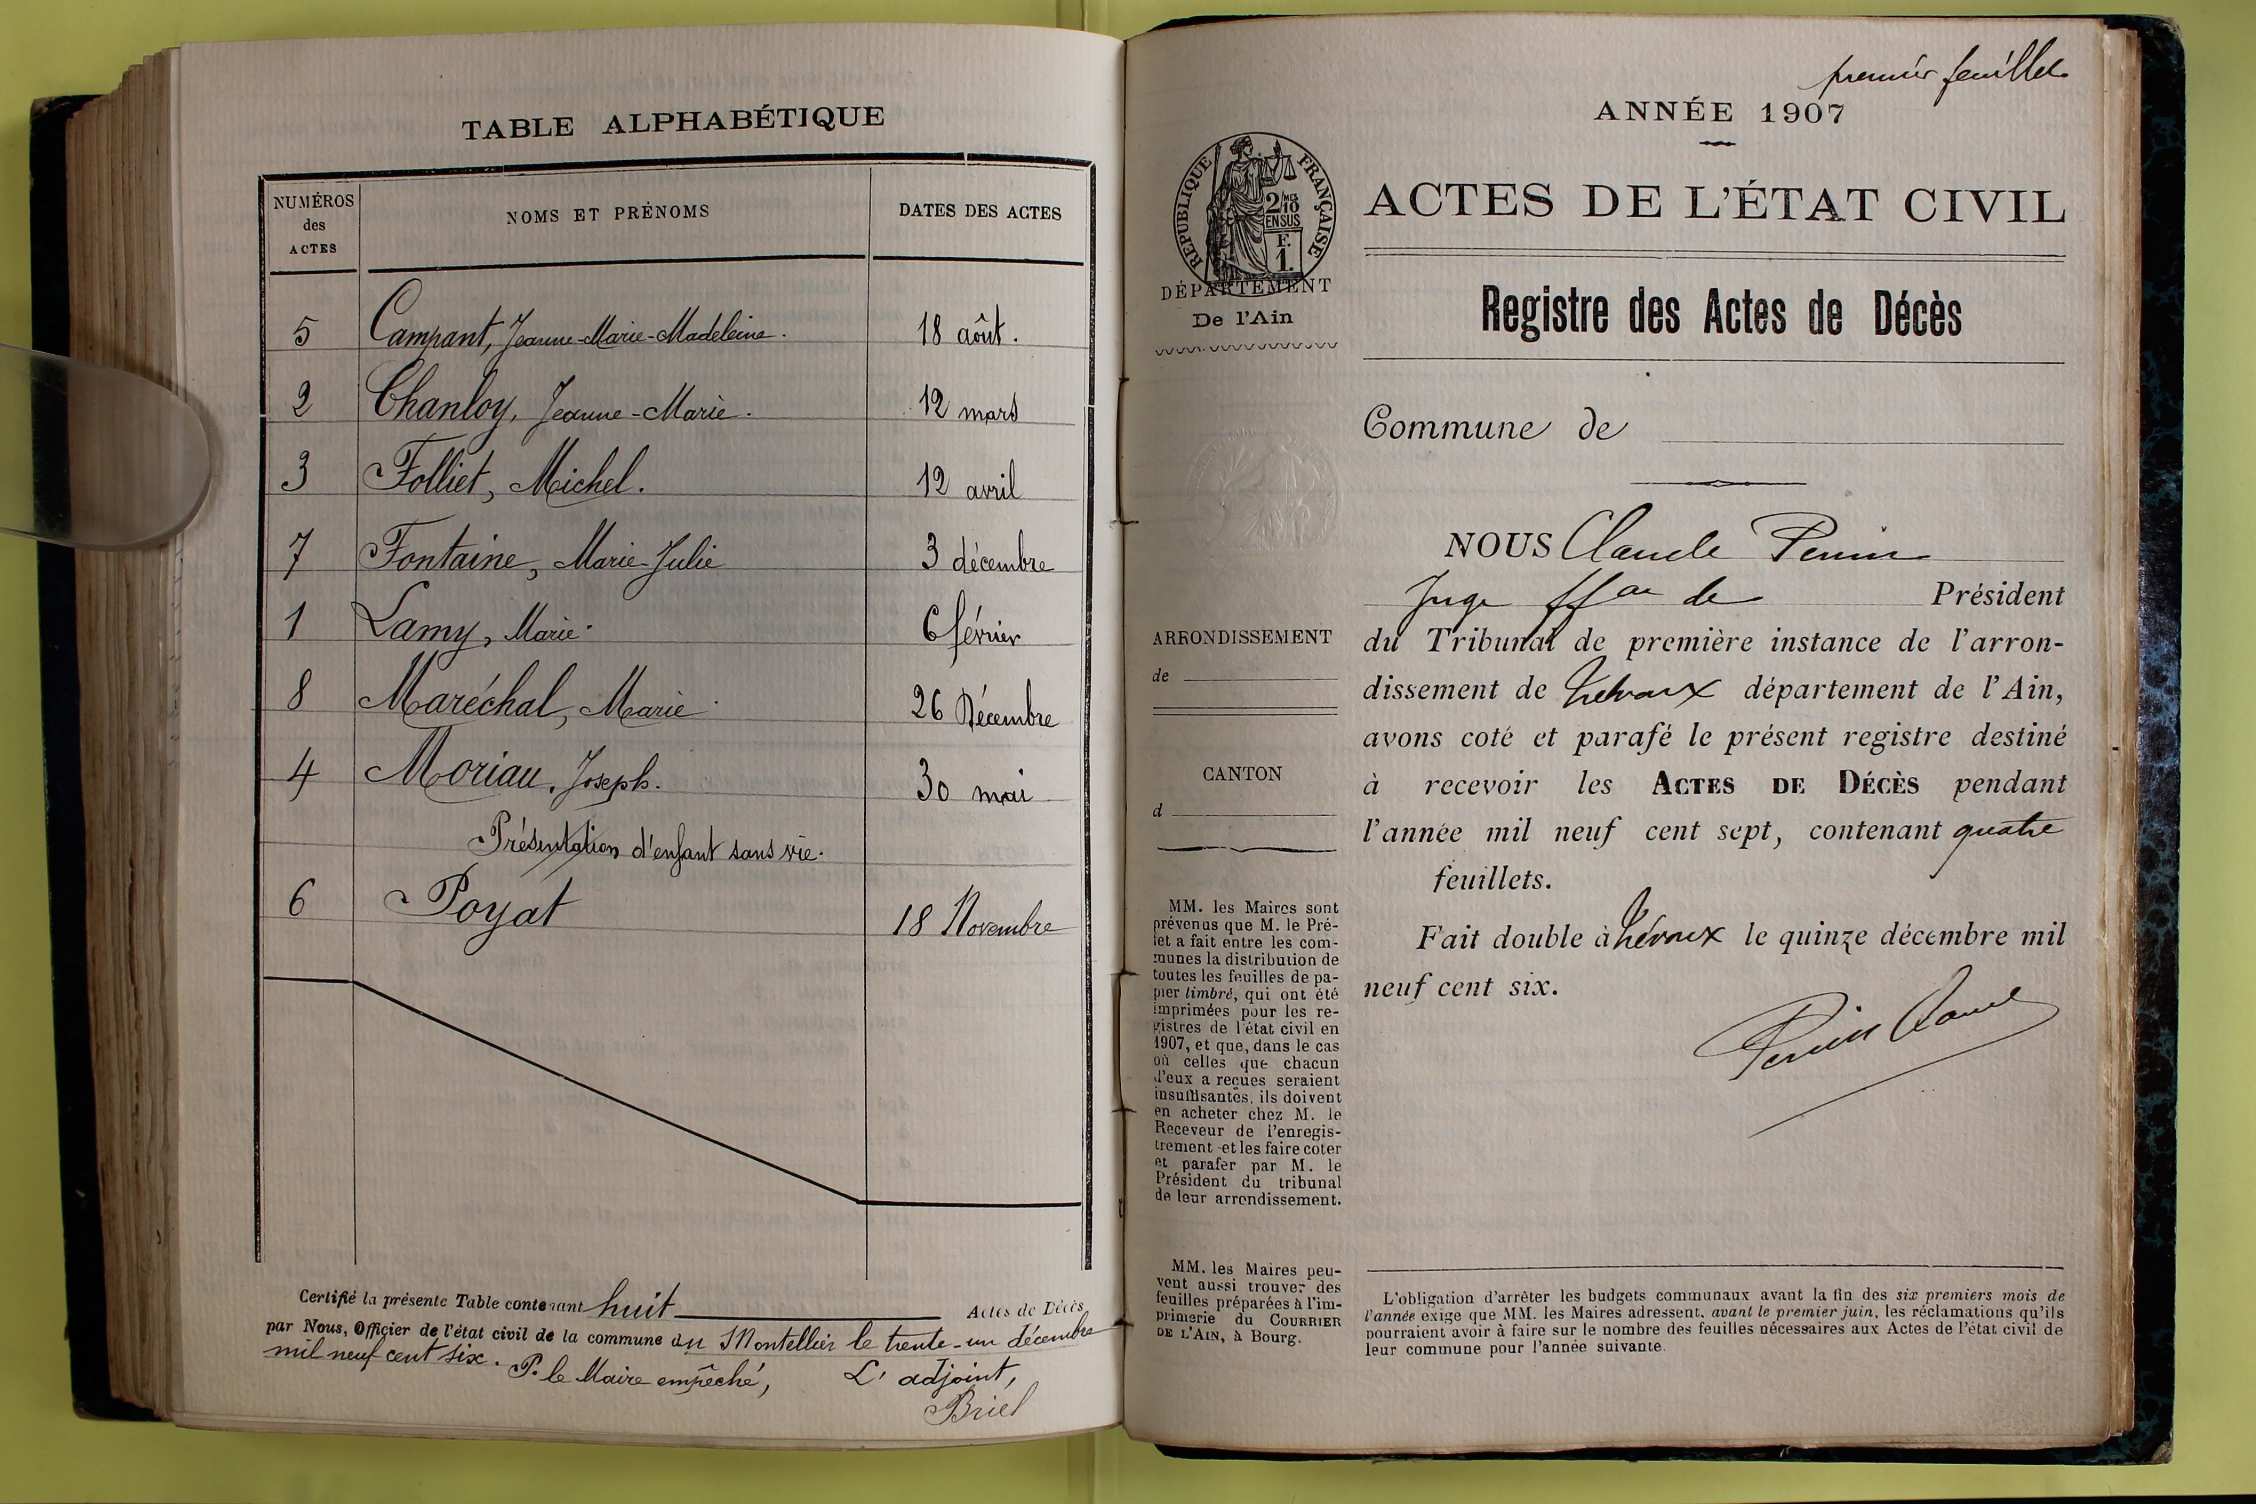 TABLE ALPHABÉTIQUE
NUMÉROS des ACTES NOMS ET PRÉNOMS DATES DES ACTES
5 Campant, Jeanne-Marie-Madeleine. 18 août.
2 Chanloy, Jeanne-Marie. 12 mars
3 Folliet, Michel. 12 avril
7 Fontaine, Marie-Julie 3 décembre
1 Lamy, Marie. 6 février
8 Maréchal, Marie 26 Décembre
4 Moriau, Joseph. 30 mai
Présentation d'enfant sans vie.
6 Poyat 18 Novembre
Certifié la présente Table contenant huit Actes de Décès
par Nous, Officier de l'état civil de la commune du Montellier le trente-un décembre
mil neuf cent six. P. le Maire empêché, L'adjoint,
Briel
premier feuillet
ANNÉE 1907
RÉPUBLIQUE FRANÇAISE
2/10 MES
EN SUS
F.
1.
DÉPARTEMENT
De l'Ain
ARRONDISSEMENT
de
CANTON
d
MM. les Maires sont
prévenus que M. le Pré-
fet a fait entre les com-
munes la distribution de
toutes les feuilles de pa-
pier timbré, qui ont été
imprimées pour les re-
gistres de l'état civil en
1907, et que, dans le cas
où celles que chacun
d'eux a reçues seraient
insuffisantes, ils doivent
en acheter chez M. le
Receveur de l'enregis-
trement et les faire coter
et parafer par M. le
Président du tribunal
de leur arrondissement.
MM. les Maires peu-
vent aussi trouver des
feuilles préparées à l'im-
primerie du COURRIER
DE L'AIN, à Bourg.
ACTES DE L'ÉTAT CIVIL
Registre des Actes de Décès
Commune de
NOUS Claude Perrin
Juge ffon de Président
du Tribunal de première instance de l'arron-
dissement de Trévoux département de l'Ain,
avons coté et parafé le présent registre destiné
à recevoir les ACTES DE DÉCÈS pendant
l'année mil neuf cent sept, contenant quatre
feuillets.
Fait double à Trévoux le quinze décembre mil
neuf cent six.
Perrin Claude
L'obligation d'arrêter les budgets communaux avant la fin des six premiers mois de
l'année exige que MM. les Maires adressent, avant le premier juin, les réclamations qu'ils
pourraient avoir à faire sur le nombre des feuilles nécessaires aux Actes de l'état civil de
leur commune pour l'année suivante.